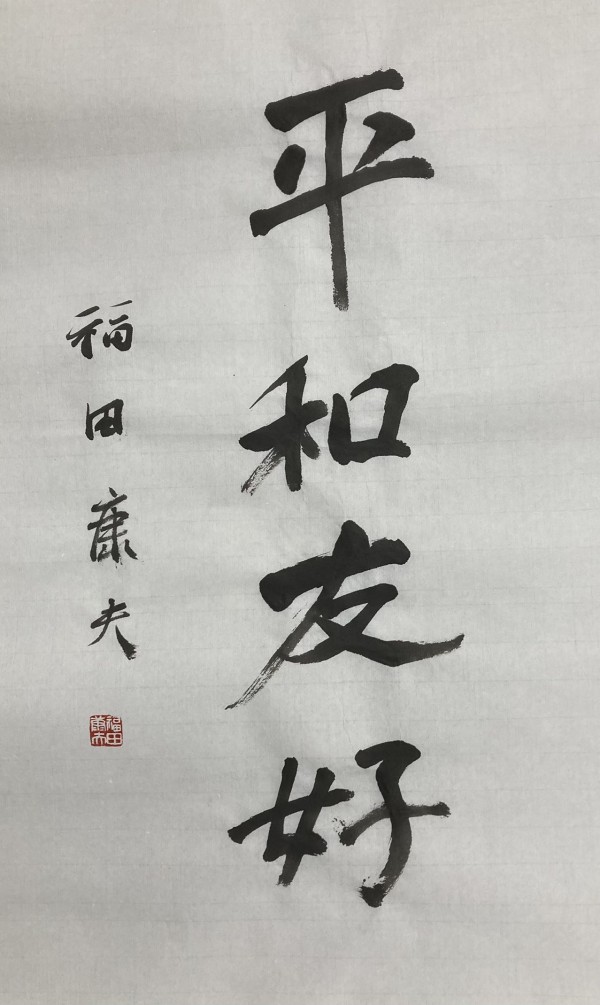 平和友好
福田康夫
福田康夫